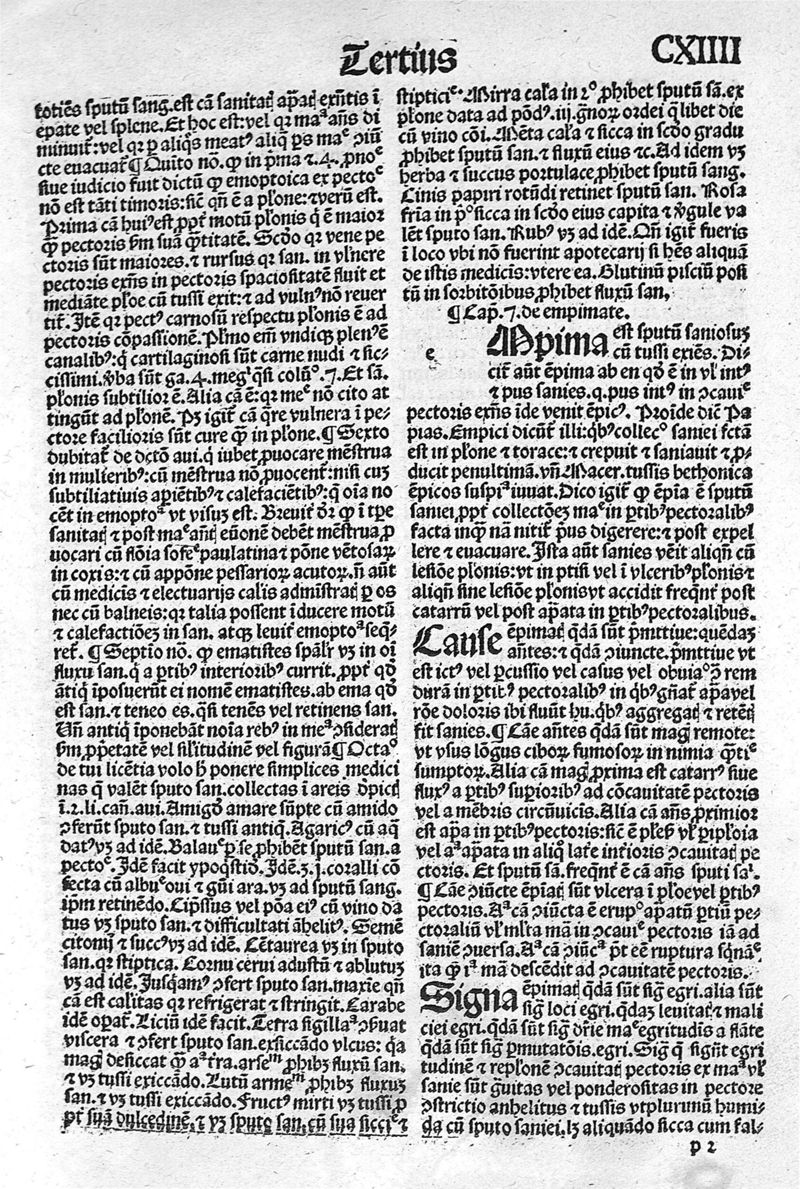 Tertius
CXIIII
totiēs sputū sang. est cā sanitatꝭ apātꝭ exn̄tis ī
epate vel splene. Et hoc est: vel qꝛ maᵃ an̄s di
minuit᷑: vel qꝛ ꝑ aliqͦs meatꝰ aliq̄ ps maᵉ ꝯiū
cte euacuat᷑ ¶ Quīto nō. ꝙ in pͥma ⁊ .4. ꝓnoᶜ
siue iudicio fuit dictū ꝙ emoptoica ex pectoᵉ
nō est tāti timoris: sic̄ qn̄ ē a plōne: ⁊ verū est.
Prima cā huiꝰ est ꝓpt᷑ motū plōnis q̄ ē maior
ꝙ̄ pectoris ẜm suā q̄titatē. Scd̄o qꝛ vene pe
ctoris sūt maiores. ⁊ rursus qꝛ san. in vl̄nere
pectoris exn̄s in pectoris spaciositatē fluit et
mediāte plōe cū tussi exit: ⁊ ad vulnꝰ nō reuer
tit᷑. Itē qꝛ pectꝰ carnosū respectu plōnis ē ad
pectoris cōpassionē. Plmo em̄ vndiqꝫ plenꝰ ē
canalibꝰ: q̄ cartilaginosi sūt carne nudi ⁊ sic-
cissimi. v̄ba sūt ga. 4. megꝭ q̄si colūᵒ. 7. Et sā.
plōnis subtilior ē. Alia cā ē: qꝛ meᵉ nō cito at
tingūt ad plōnē. Pꝫ igit᷑ cā q̄re vulnera ī pe-
ctore facilioris sūt cure ꝙ̄ in plōne. ¶ Sexto
dubitat᷑ de dctō aui. q̄ iubet ꝓuocare mēstrua
in mulieribꝰ: cū mēstrua nō ꝓuocent᷑: nisi cuꝫ
subtiliatiuis apiētibꝰ ⁊ calefaciētibꝰ: q̄ oīa no
cēt in emoptoᵃ vt visuꝫ est. Breuit᷑ dr̄ ꝙ ī tp̄e
sanitatꝭ ⁊ post maᵉ an̄tꝭ euōnē debēt mēstrua ꝓ
uocari cū flōia sofeᵉ paulatina ⁊ pōne vētosaꝝ
in coxis: ⁊ cū appōne pessarioꝝ acutoꝝ. n̄ aūt
cū medicīs ⁊ electuarijs calīs admīstratꝭ ꝑ os
nec cū balneis: qꝛ talia possent īducere motū
⁊ calefactiōeꝫ in san. atqꝫ leuit᷑ emoptoᵃ seq̄-
ret᷑. ¶ Septīo nō. ꝙ ematistes spāl̄r vꝫ in oī
fluxu san. q̄ a ꝑtibꝰ interioribꝰ currit. ꝓpt᷑ qd̄
ātiq̄ īposuerūt ei nomē ematistes. ab ema qd̄
est san. ⁊ teneo es. q̄si tenēs vel retinens san.
Un̄ antiq̄ īponebāt noīa rebꝰ in meᵃ ꝯsideratꝭ
ẜm ꝓpͥetatē vel sil̄itudinē vel figurā ¶ Octaᵒ
de tui licētia volo h̄ ponere simplices medici
nas q̄ valēt sputo san. collectas ī areis dp̄ictꝭ
ī. 2. li. can. aui. Amigd̄ amare sūpte cū amido
ꝯferūt sputo san. ⁊ tussi antiq̄. Agaricꝰ cū aq̄
datꝰ vꝫ ad idē. Balauᵉ ꝑ se ꝓhibēt sputū san. a
pectoᵉ. Idē facit ypoq̄stid̄. Idē. ʒ. j. coralli cō
fecta cū albuᵉ oui ⁊ gūi ara. vꝫ ad sputū sang.
ip̄m retinēdo. Cip̄ssus vel pōa eiꝰ cū vino da
tus vꝫ sputo san. ⁊ difficultati āhelitꝰ. Semē
citonij ⁊ succꝰ vꝫ ad idē. Cētaurea vꝫ in sputo
san. qꝛ stiptica. Cornu cerui adustū ⁊ ablutuꝫ
vꝫ ad idē. Jusq̄amꝰ ꝯfert sputo san. maxīe qn̄
cā est calītas qꝛ refrigerat ⁊ stringit. Carabe
idē oꝑat᷑. Liciū idē facit. Terra sigillaᵃ ꝯẜuat
viscera ⁊ ꝯfert sputo san. exsiccādo vlcus: q̄a
magꝭ desiccat ꝙ̄ aᵃ t᷑ra. arseᵐ ꝓhibꝫ fluxū san.
⁊ vꝫ tussi exiccādo. Lutū armeᵐ ꝓhibꝫ fluxuꝫ
san. ⁊ vꝫ tussi exiccādo. Fructꝰ mirti vꝫ tussi ꝓ
pt᷑ suā dulcedinē. ⁊ vꝫ sputo san. cū sua siccīe ⁊
stipticiᵉ. Mirra cal̄a in 2ᵒ ꝓhibet sputū sā. ex
plōne data ad pōdꝰ. iij. gͣnoꝝ ordei q̄libet die
cū vino cōi. Mēta cal̄a ⁊ sicca in scd̄o gradu
ꝓhibet sputū san. ⁊ fluxū eius ⁊c. Ad idem vꝫ
herba ⁊ succus portulace, ꝓhibet sputū sang.
Cinis papiri rotūdi retinet sputū san. Rosa
frīa in pͦ sicca in scd̄o eius capita ⁊ v̄gule va
lēt sputo san. Rubꝰ vꝫ ad idē. Qn̄ igit᷑ fueris
ī loco vbi nō fuerint apotecarij si hēs aliquā
de istis medicīs: vtere ea. Glutinū pisciū posi
tū in sorbitōibus ꝓhibet fluxū san.
¶ Cap. 7. de empimate.
e
Mpima est sputū saniosuꝫ
cū tussi exiēs. Di-
cit᷑ aūt ēpima ab en qd̄ ē in vl̄ intꝰ
⁊ pus sanies. q. pus intꝰ in ꝯcauiᵉ
pectoris exn̄s īde venit ēpicꝰ. Proīde dic̄ Pa
pias. Empici dicūt᷑ illi: qͥbꝰ collecᵒ saniei fc̄tā
est in plōne ⁊ torace: ⁊ crepuit ⁊ saniauit ⁊ ꝓ-
ducit penultimā. vn̄ Macer. tussis bethonica
ēpicos suspiᵃ iuuat. Dico igit᷑ ꝙ ēpīa ē sputū
saniei, ꝓpt᷑ collectōeꝫ maᵉ in ꝑtibꝰ pectoralibꝰ
facta inqͣ nā nitit᷑ pͥus digerere: ⁊ post expel
lere ⁊ euacuare. Ista aūt sanies vēit aliqn̄ cū
lesiōe plōnis: vt in ptisi vel ī vlceribꝰ plōnis ⁊
aliqn̄ sine lesiōe plōnis vt accidit freq̄nt᷑ post
catarrū vel post apāta in ꝑtibꝰ pectoralibus.
Cause ēpimatꝭ qdā sūt pͥmittiue: quēdaꝫ
an̄tes: ⁊ qdā ꝯiuncte. pͥmittiue vt
est ictꝰ vel percussio vel casus vel obuiaᵒ ꝯ̄ rem
durā in ꝑtibꝰ pectoralibꝰ in qͥbꝰ gn̄at᷑ apa vel
rōe doloris ibi fluūt hu. qͥbꝰ aggregatꝭ ⁊ retētꝭ
fit sanies. ¶ Cāe an̄tes qdā sūt magꝭ remote:
vt vsus lōgus ciboꝝ fumosoꝝ in nimia q̄tiᵉ
sumptoꝝ. Alia cā magꝭ ꝓxima est catarrꝰ siue
fluxꝰ a ꝑtibꝰ supͥoribꝰ ad cōcauitatē pectoris
vel a mēbris circūuicīs. Alia cā an̄s ꝓximior
est apa in ꝑtibꝰ pectoris: sic̄ ē plesꝭ vl̄ ꝑiplōia
vel aᵃ apata in aliq̄ lat᷑e int᷑ioris ꝯcauitatꝭ pe
ctoris. Et sputū sā. freq̄nt᷑ ē cā an̄s sputi saˡ.
¶ Cāe ꝯiūcte ēpīatꝭ sūt vlcera ī plōe vel ꝑtibꝰ
pectoris. Aᵃ cā ꝯiūcta ē erupᵒ apatū ꝑtiū pe-
ctoraliū vl̄ ml̄ta mā in ꝯcauiᵉ pectoris iā ad
saniē ꝯuersa. Aᵃ cā ꝯiūcᵃ pt̄ eē ruptura sqͥnāᵉ
ita ꝙ iᵃ mā descēdit ad ꝯcauitatē pectoris.
Signa ēpimatꝭ qdā sūt sigᵃ egri. alia sūt
sigᵃ loci egri. qdaꝫ leuitatꝭ ⁊ mali
ciei egri. qdā sūt sigᵃ dr̄ie maᵉ egritudīs a flāte
qdā sūt sigᵃ ꝑmutatōis. egri. Sigᵃ q̄ sign̄t egri
tudinē ⁊ replōnē ꝯcauitatꝭ pectoris ex maᵃ vl̄
sanie sūt gͣuitas vel ponderositas in pectore
ꝯstrictio anhelitus ⁊ tussis vtplurimū humi-
da cū sputo saniei. lꝫ aliquādo sicca cum fal-
p 2